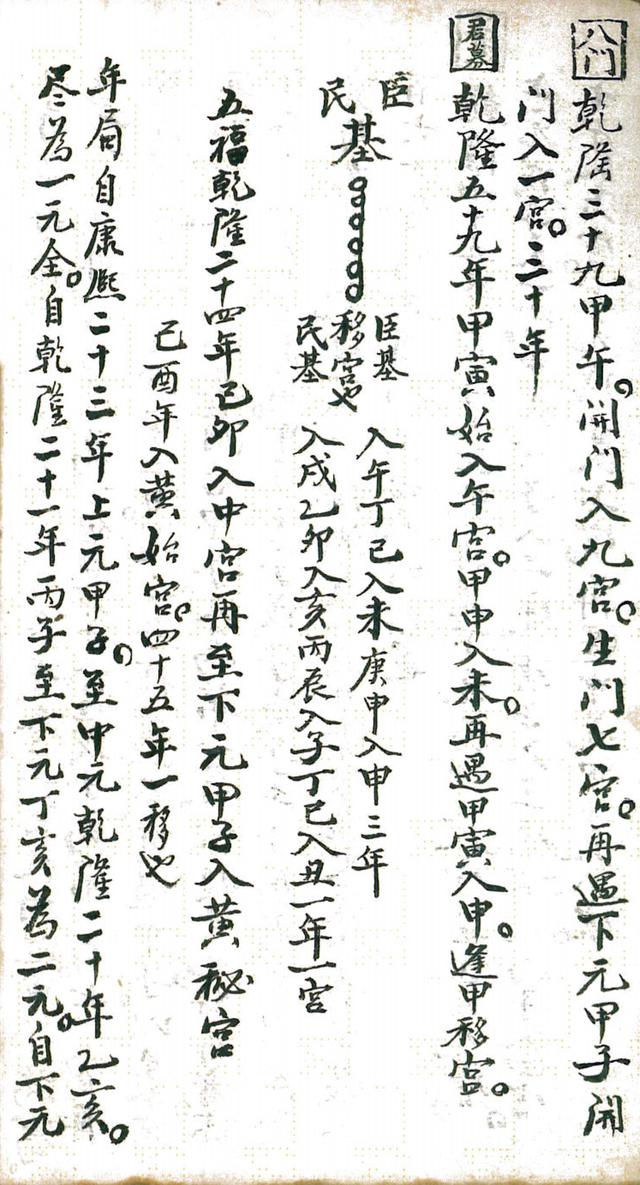 八门 乾隆三十九甲午。開门入九宫。生门七宫。再遇下元甲子開
门入一宫。三十年
君基 乾隆五十九年甲寅始入午宫。甲申入未。再遇甲寅入申。逢甲移宫。
臣
民
基
臣基
移宫也
民基
入午丁巳入未庚申入申三年
入戌乙卯入亥丙辰入子丁巳入丑一年一宫
五福乾隆二十四年己卯入中宫再至下元甲子入黄秘宫
己酉年入黄始宫。四十五年一移也
年局自康熙二十三年上元甲子。至中元乾隆二十年乙亥。
尽為一元全。自乾隆二十一年丙子至下元丁亥為二元。自下元